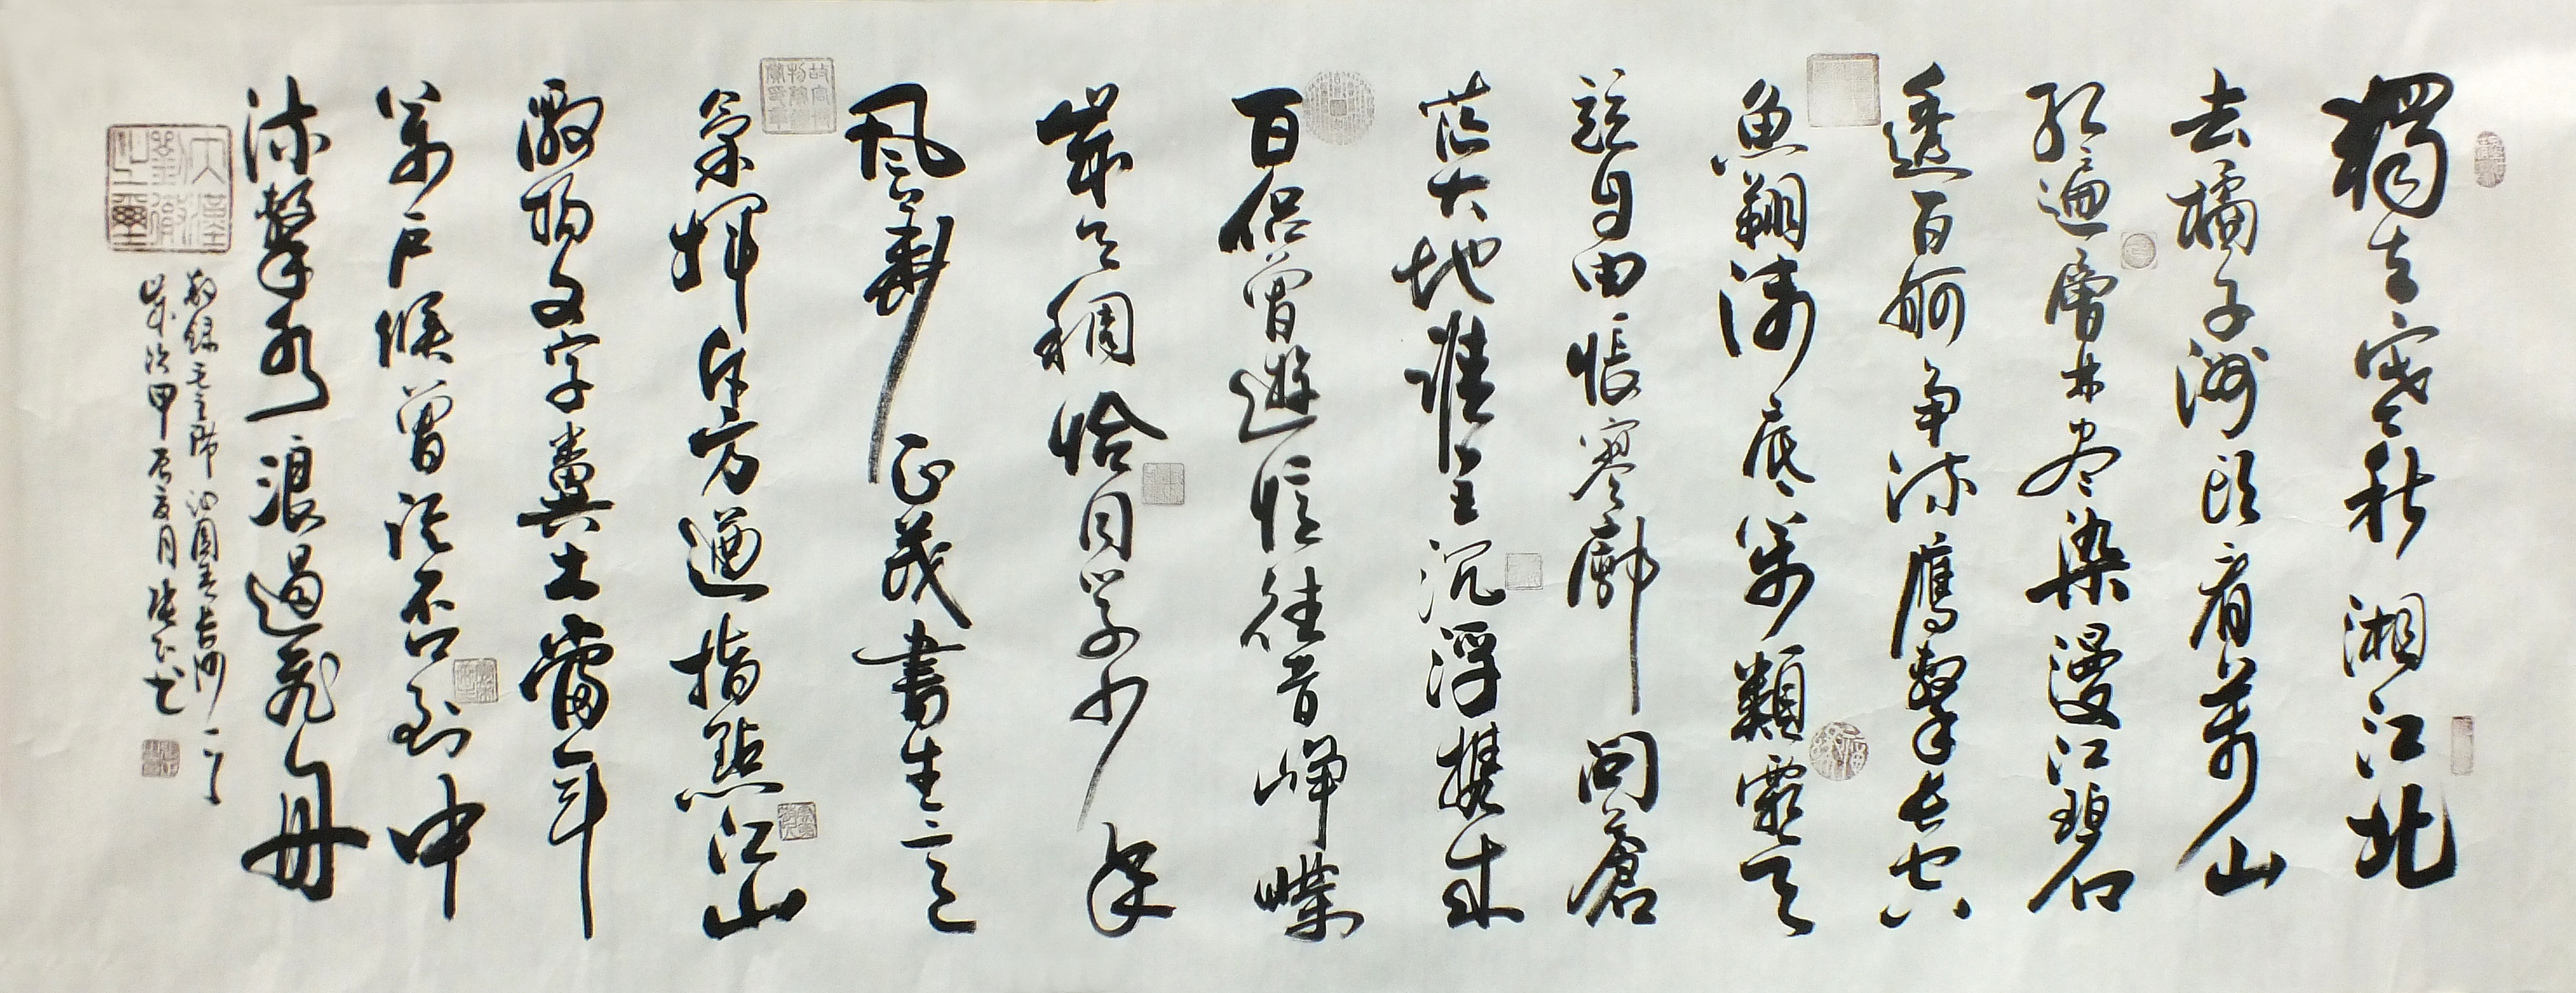 獨立寒秋湘江北
去橘子洲头看萬山
红遍層林尽染漫江碧
透百舸争流鷹擊长空
魚翔浅底萬類霜天
競自由悵寥廓問蒼
茫大地誰主沉浮携来
百侣曾遊憶往昔崢嶸
歲月稠恰同学少年
風華正茂書生意
氣揮斥方遒指點江山
激揚文字糞土當年
萬户候曾记否到中
流擊水浪遏飛舟
敬録毛主席沁園春长沙一首
歲次甲辰夏月張书
大漢劉徹之璽